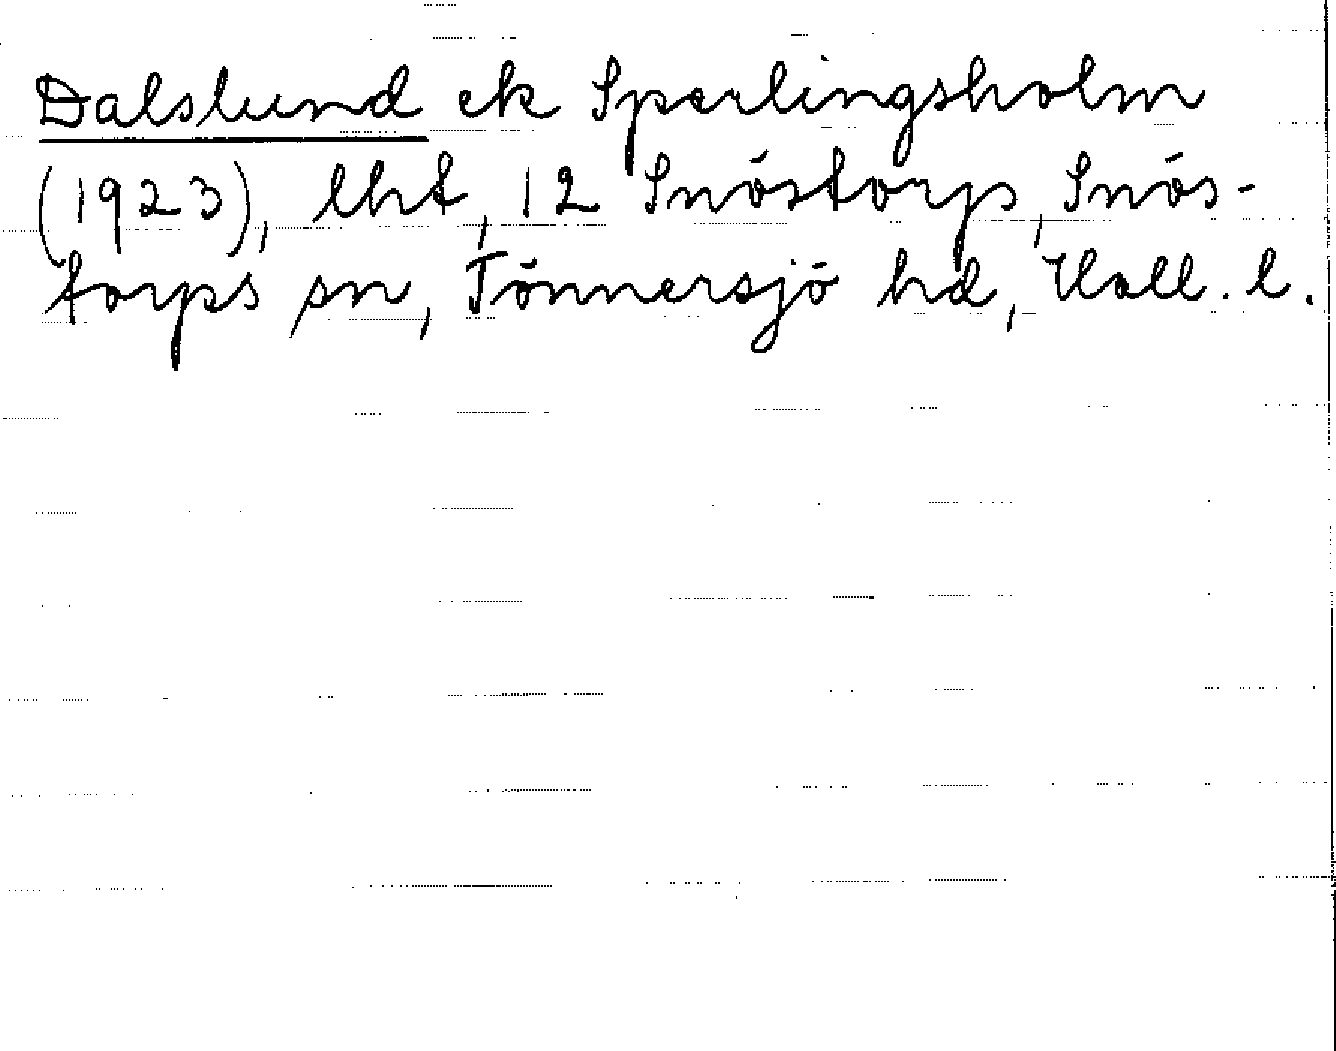 Dalslund ek Sperlingsholm
(1923), lht, 12 Snöstorps, Snös-
torps sn, Tönnersjö hd, Hall. l.